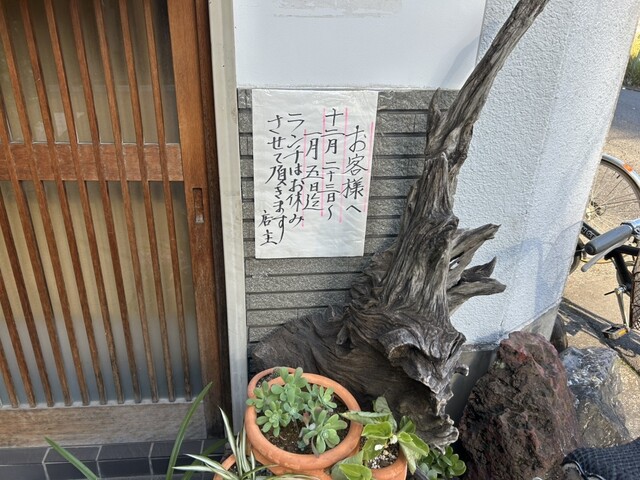 お客様へ
十二月二十三日〜
一月五日迄
ランチはお休み
させて頂きます
店主